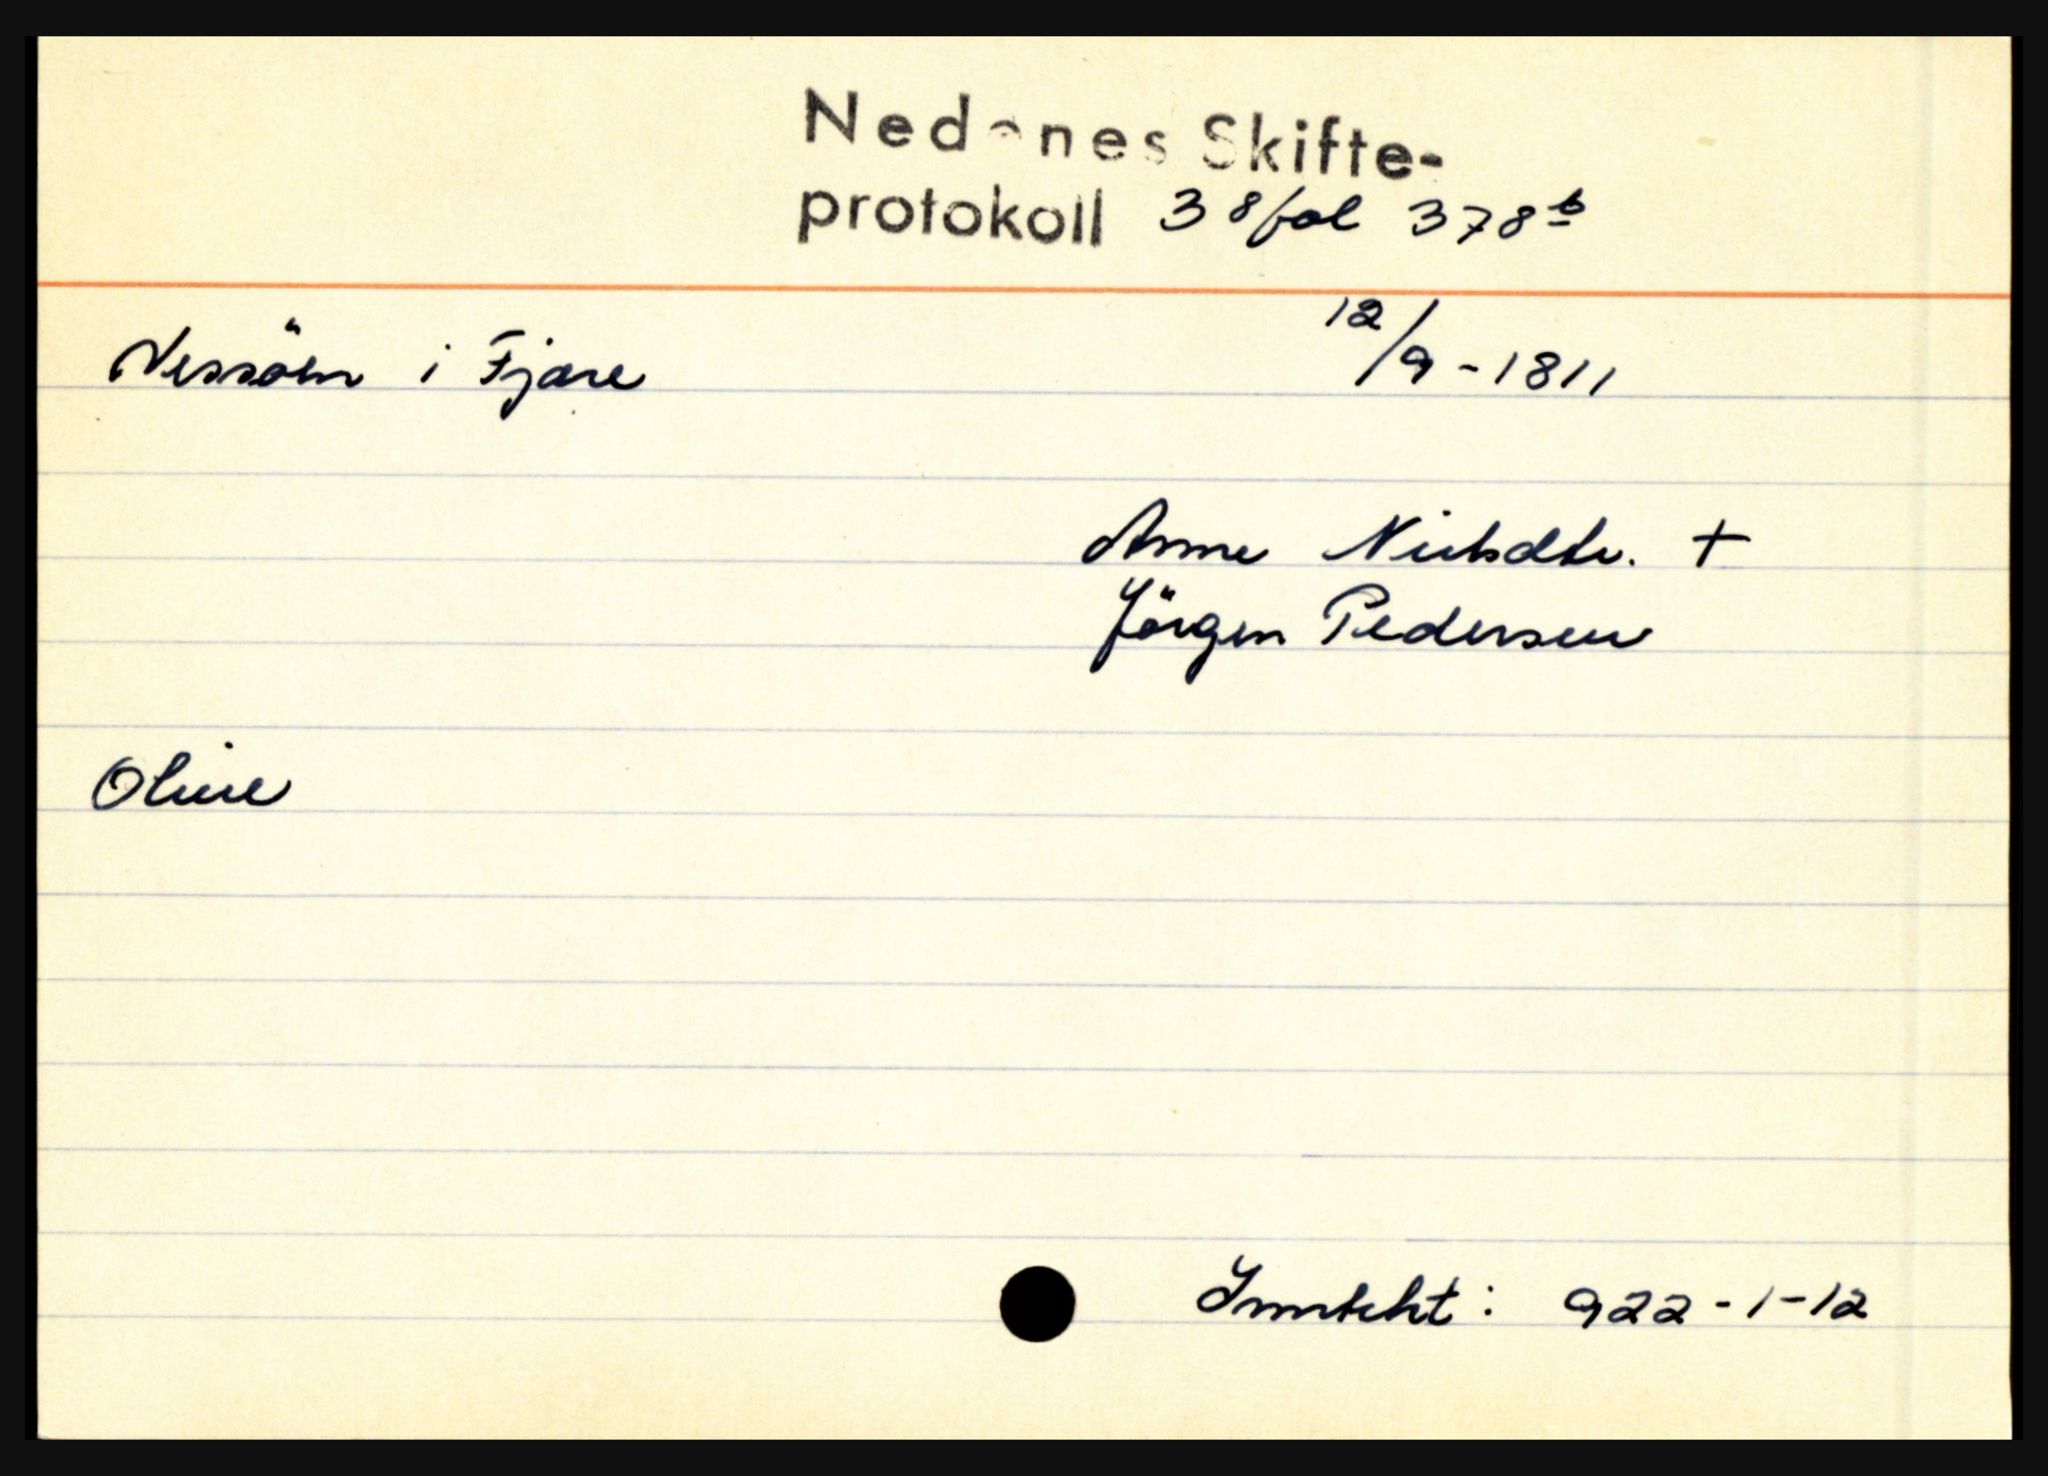 Nedenes Skifte-
protokoll 38 fol 378 b
Nessöen i Fjære 12/9-1811
Anne Nielsdtr. +
Jörgen Pedersen
Oline
Inntekt: 922-1-12